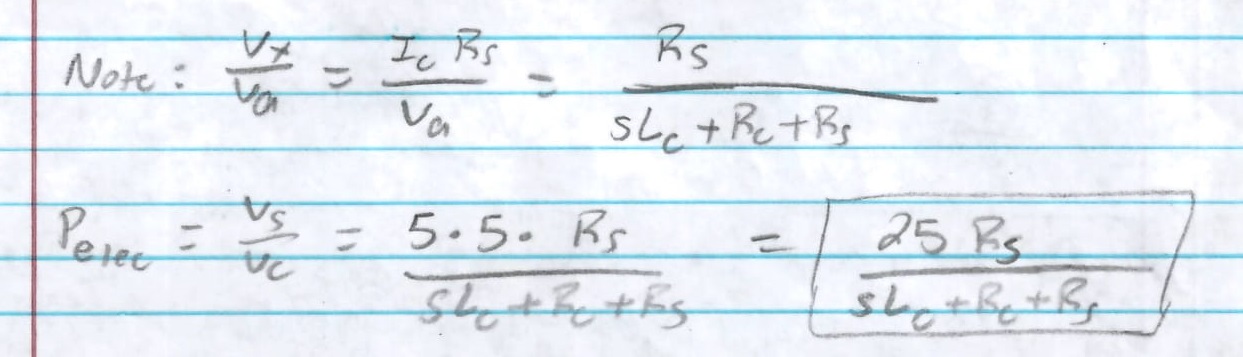 Note: Vx/Va = Ic Rs/Va = Rs/(sLc + Rc + Rs)
Pelec = Vs/Vc = 5·5·Rs/(sLc + Rc + Rs) = 25 Rs/(sLc + Rc + Rs)